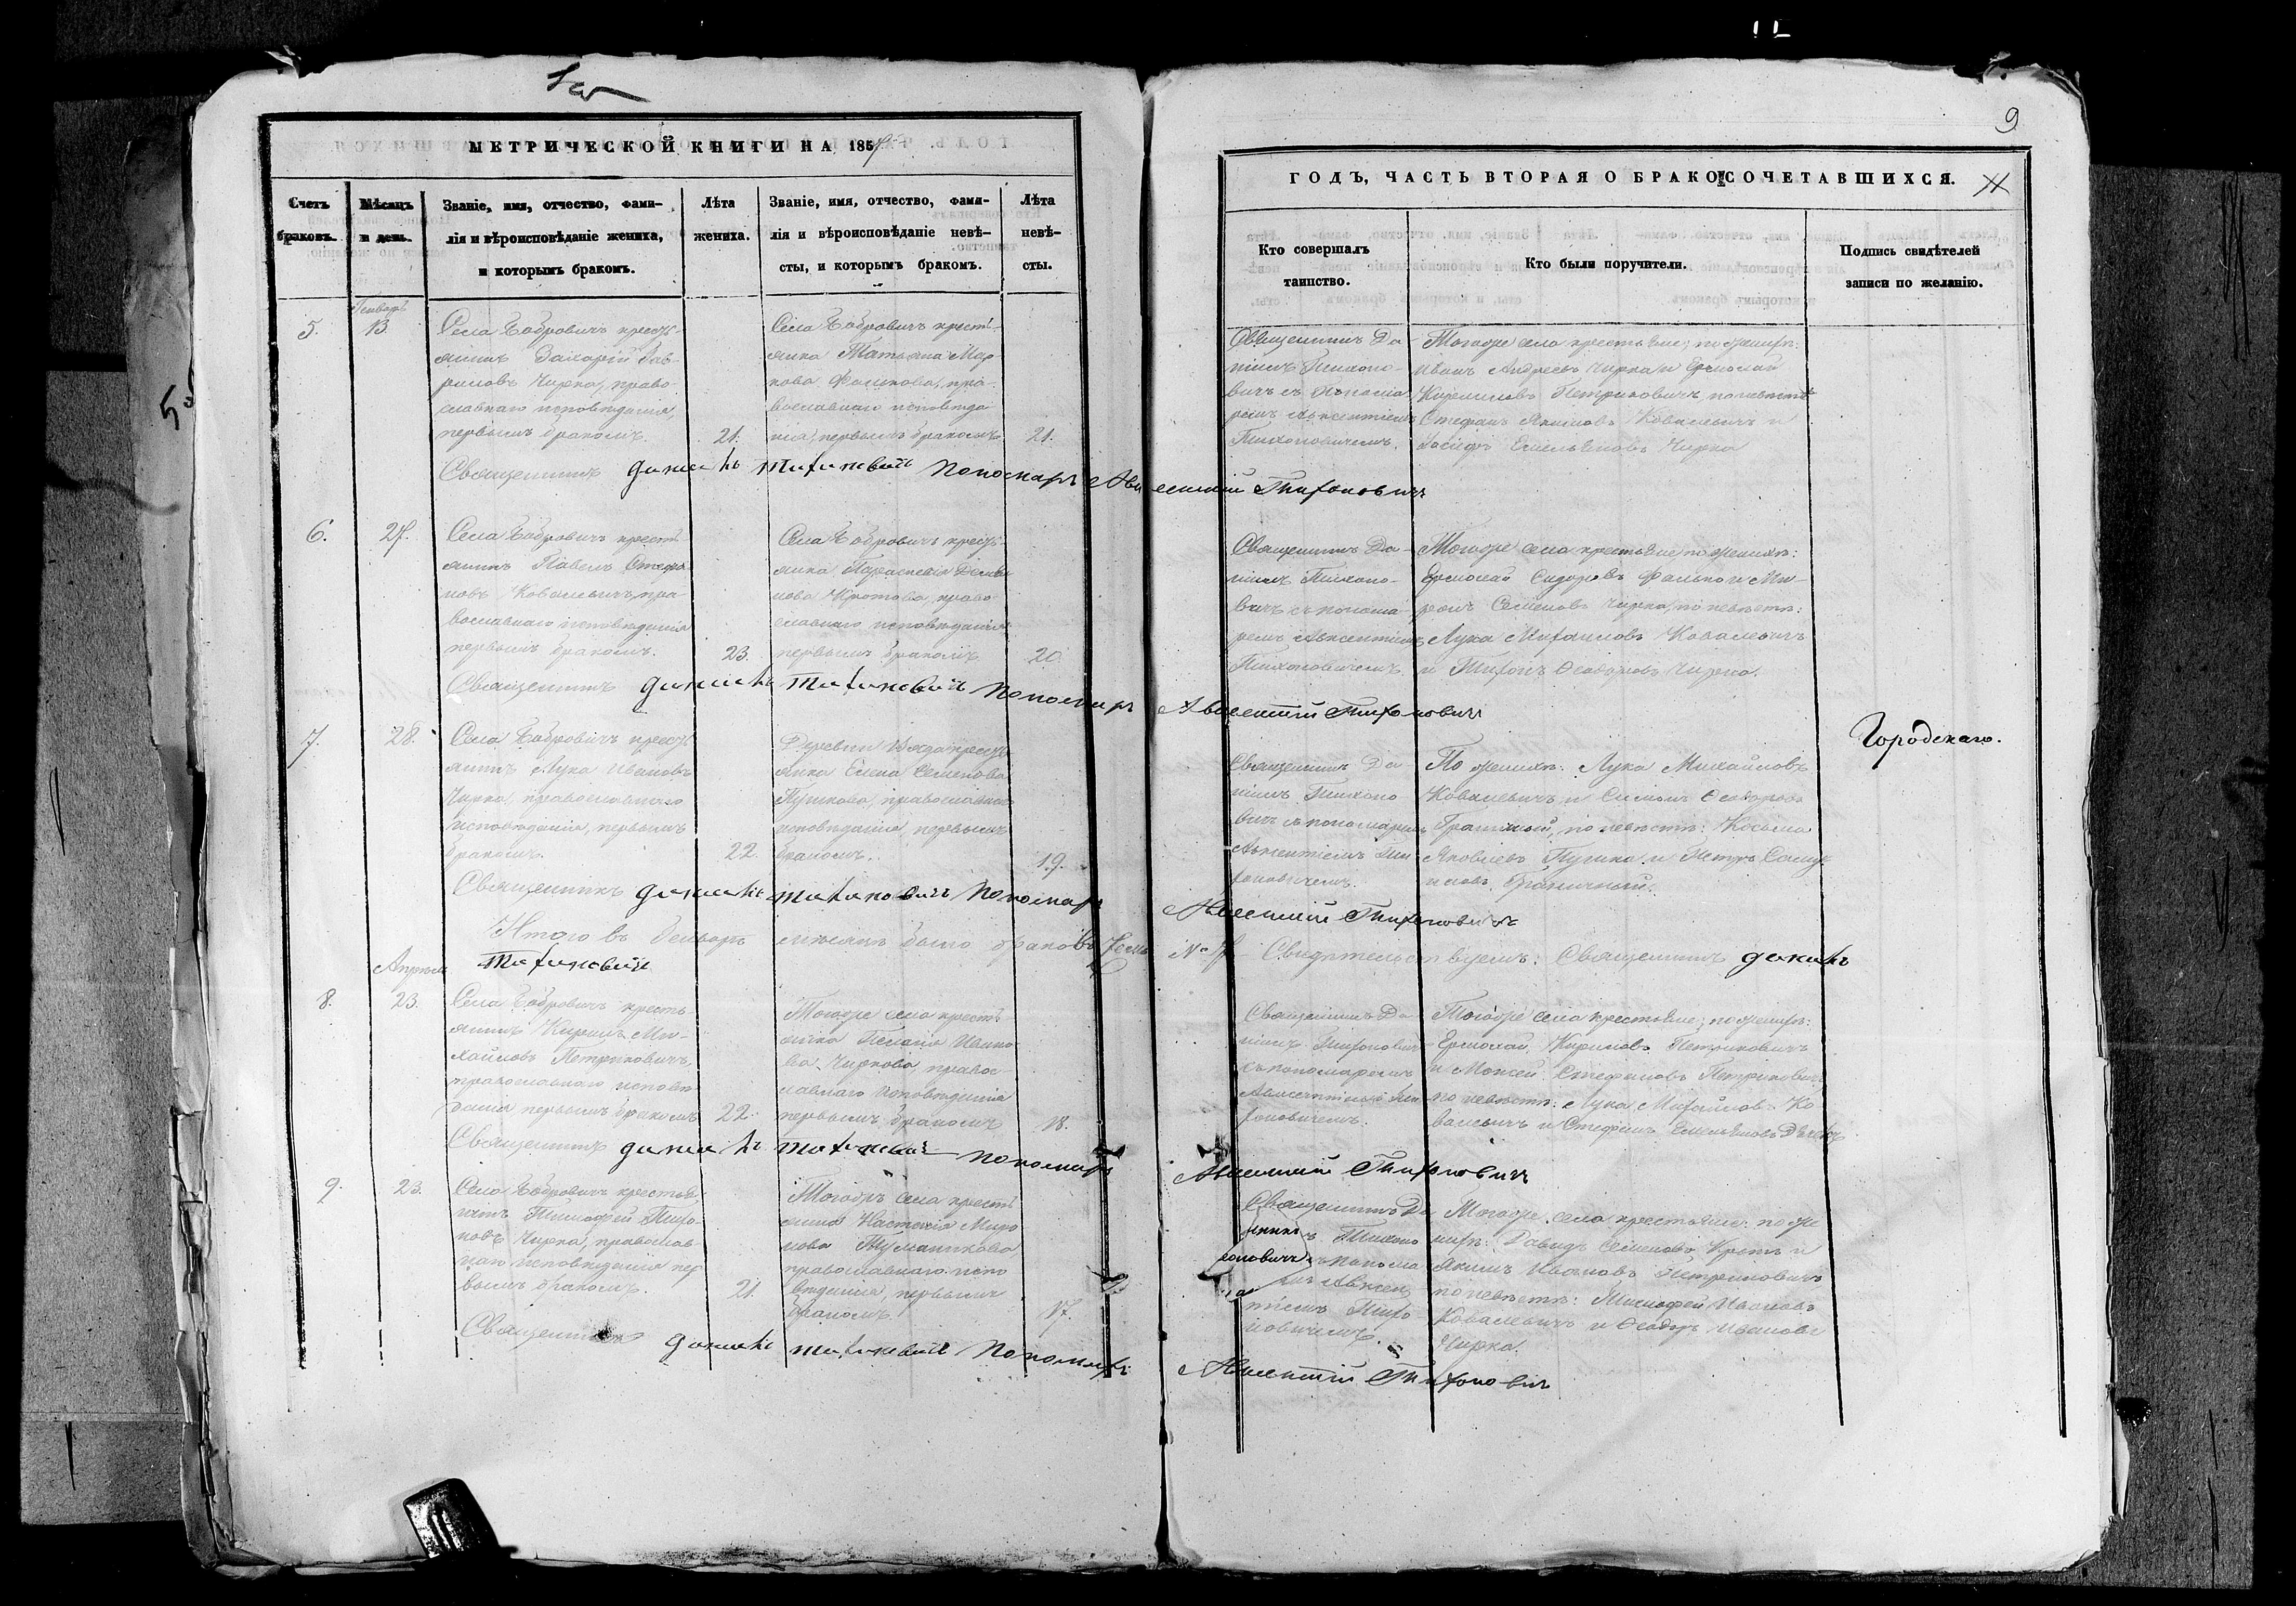 9
МЕТРИЧЕСКОЙ КНИГИ НА 1857
ГОДЪ, ЧАСТЬ ВТОРАЯ О БРАКОСОЧЕТАВШИХСЯ.
Счетъ
браковъ.
Мѣсяцъ
и день.
Званіе, имя, отчество, фами-
лія и вѣроисповѣданіе жениха,
и которымъ бракомъ.
Лѣта
жениха.
Званіе, имя, отчество, фами-
лія и вѣроисповѣданіе невѣ-
сты, и которымъ бракомъ.
Лѣта
невѣ-
сты.
Кто совершалъ
таинство.
Кто были поручители.
Подпись свидѣтелей
записи по желанію.
5.
Генварь
13.
Села Бобровичъ кресть-
янинъ Захарій Гав-
риловъ Чирка, право-
славнаго исповѣданія
первымъ бракомъ.
21.
Села Бобровичъ кресть-
янка Татьяна Мар
кова Фалькова, пра-
вославнаго исповѣда
нія, первымъ бракомъ
21.
Священникъ Да-
ніилъ Тихоно-
вичъ съ Понома
ремъ Авксентіемъ
Тихоновичемъ.
Тогоже села крестьяне; по женихѣ:
Иванъ Андреевъ Чирка и Ермолай
Кириловъ Петриковичъ, по невѣстѣ
Стефанъ Якимовъ Ковалевичъ и
Іосифъ Емельяновъ Чирка
Священникъ Даніилъ Тихоновичъ Пономарь Авксентій Тихоновичъ
6.
27.
Села Бобровичъ кресть
янинъ Павелъ Стефа
новъ Ковалевичъ, пра-
вославнаго исповѣданія
первымъ бракомъ.
23.
Села Бобровичъ кресть
янка Параскевія Демья
нова Кротова, право
славнаго исповѣданія
первымъ бракомъ
20.
Священникъ Да-
ніилъ Тихоно-
вичъ съ понома-
ремъ Авксентіемъ
Тихоновичемъ
Тогоже села крестьяне; по женихѣ:
Ермолай Сидоровъ Фалько и Ми-
ронъ Семеновъ Чирка, по невѣстѣ:
Лука Михайловъ Ковалевичъ
и Тихонъ Ѳеодоровъ Чирка.
Священникъ Даніилъ Тихоновичъ Пономарь Авксентій Тихоновичъ
7.
28.
Села Бобровичъ кресть
янинъ Лука Ивановъ
Чирка, православнаго
исповѣданія, первымъ
бракомъ.
22.
Деревни кресть
янка Елена Семенова
Пушкова, православнаго
исповѣданія, первымъ
бракомъ.
19.
Священникъ Да-
ніилъ Тихоно
вичъ съ пономаремъ
Авксентіемъ Ти-
хоновичемъ.
По женихѣ: Лука Михайловъ
Ковалевичъ и Симонъ Ѳеодоровъ
по невѣстѣ: Косьма
Яковлевъ и Петръ
Городскаго.
Священникъ Даніилъ Тихоновичъ Пономарь Авксентій Тихоновичъ
Итого въ Генварѣ мѣсяцѣ было браковъ Семь № 7. Свидѣтельствуемъ: Священникъ Даніилъ
Тихоновичъ
Апрѣль
8.
23.
Села Бобровичъ кресть
янинъ Кирилъ Ми-
хайловъ Петриковичъ,
православнаго исповѣ
данія первымъ бракомъ
22.
Тогоже села кресть
янка Пелагія Ивано
ва Чиркова правос-
лавнаго исповѣданія
первымъ бракомъ
18.
Священникъ Да-
ніилъ Тихоновичъ
съ пономаремъ
Авксентіемъ Ти
хоновичемъ.
Тогоже села крестьяне; по женихѣ:
Ермолай Кириловъ Петриковичъ
и Моисей Стефановъ Петриковичъ
по невѣстѣ: Лука Михайловъ Ко
валевичъ и Стефанъ Емельяновъ
Священникъ Даніилъ Тихоновичъ Пономарь Авксентій Тихоновичъ
9.
23.
Села Бобровичъ крестья
нинъ Тимофей Тихо-
новъ Чирка, православ-
наго исповѣданія пер
вымъ бракомъ.
21.
Тогожъ села кресть
янка Настасія Миро
нова Туманикова
православнаго испо
вѣданія, первымъ
бракомъ.
17.
Священникъ Да
Тихоно
съ понома
Авксен
тіемъ Тихо-
новичемъ.
Тогоже села крестьяне: по же
нихѣ: Давидъ Семеновъ Кротъ и
Якимъ Ивановъ Петриковичъ
по невѣстѣ: Тимофей Ивановъ
Ковалевичъ и Ѳеодоръ Ивановъ
Чирка.
Священникъ Даніилъ Тихоновичъ Пономарь Авксентій Тихоновичъ